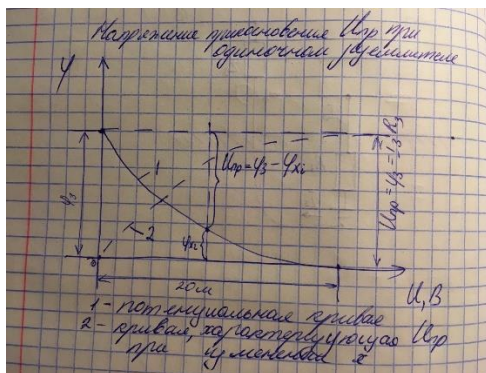 Напряжение прикосновения Uпр при
одиночном заземлителе
φ
1
Uпр=φз-φxi
Uпр=φз=IзRз
φз
2
φxi
20м
U,В
1-потенциальная кривая
2-кривая, характеризующая Uпр
при изменении x